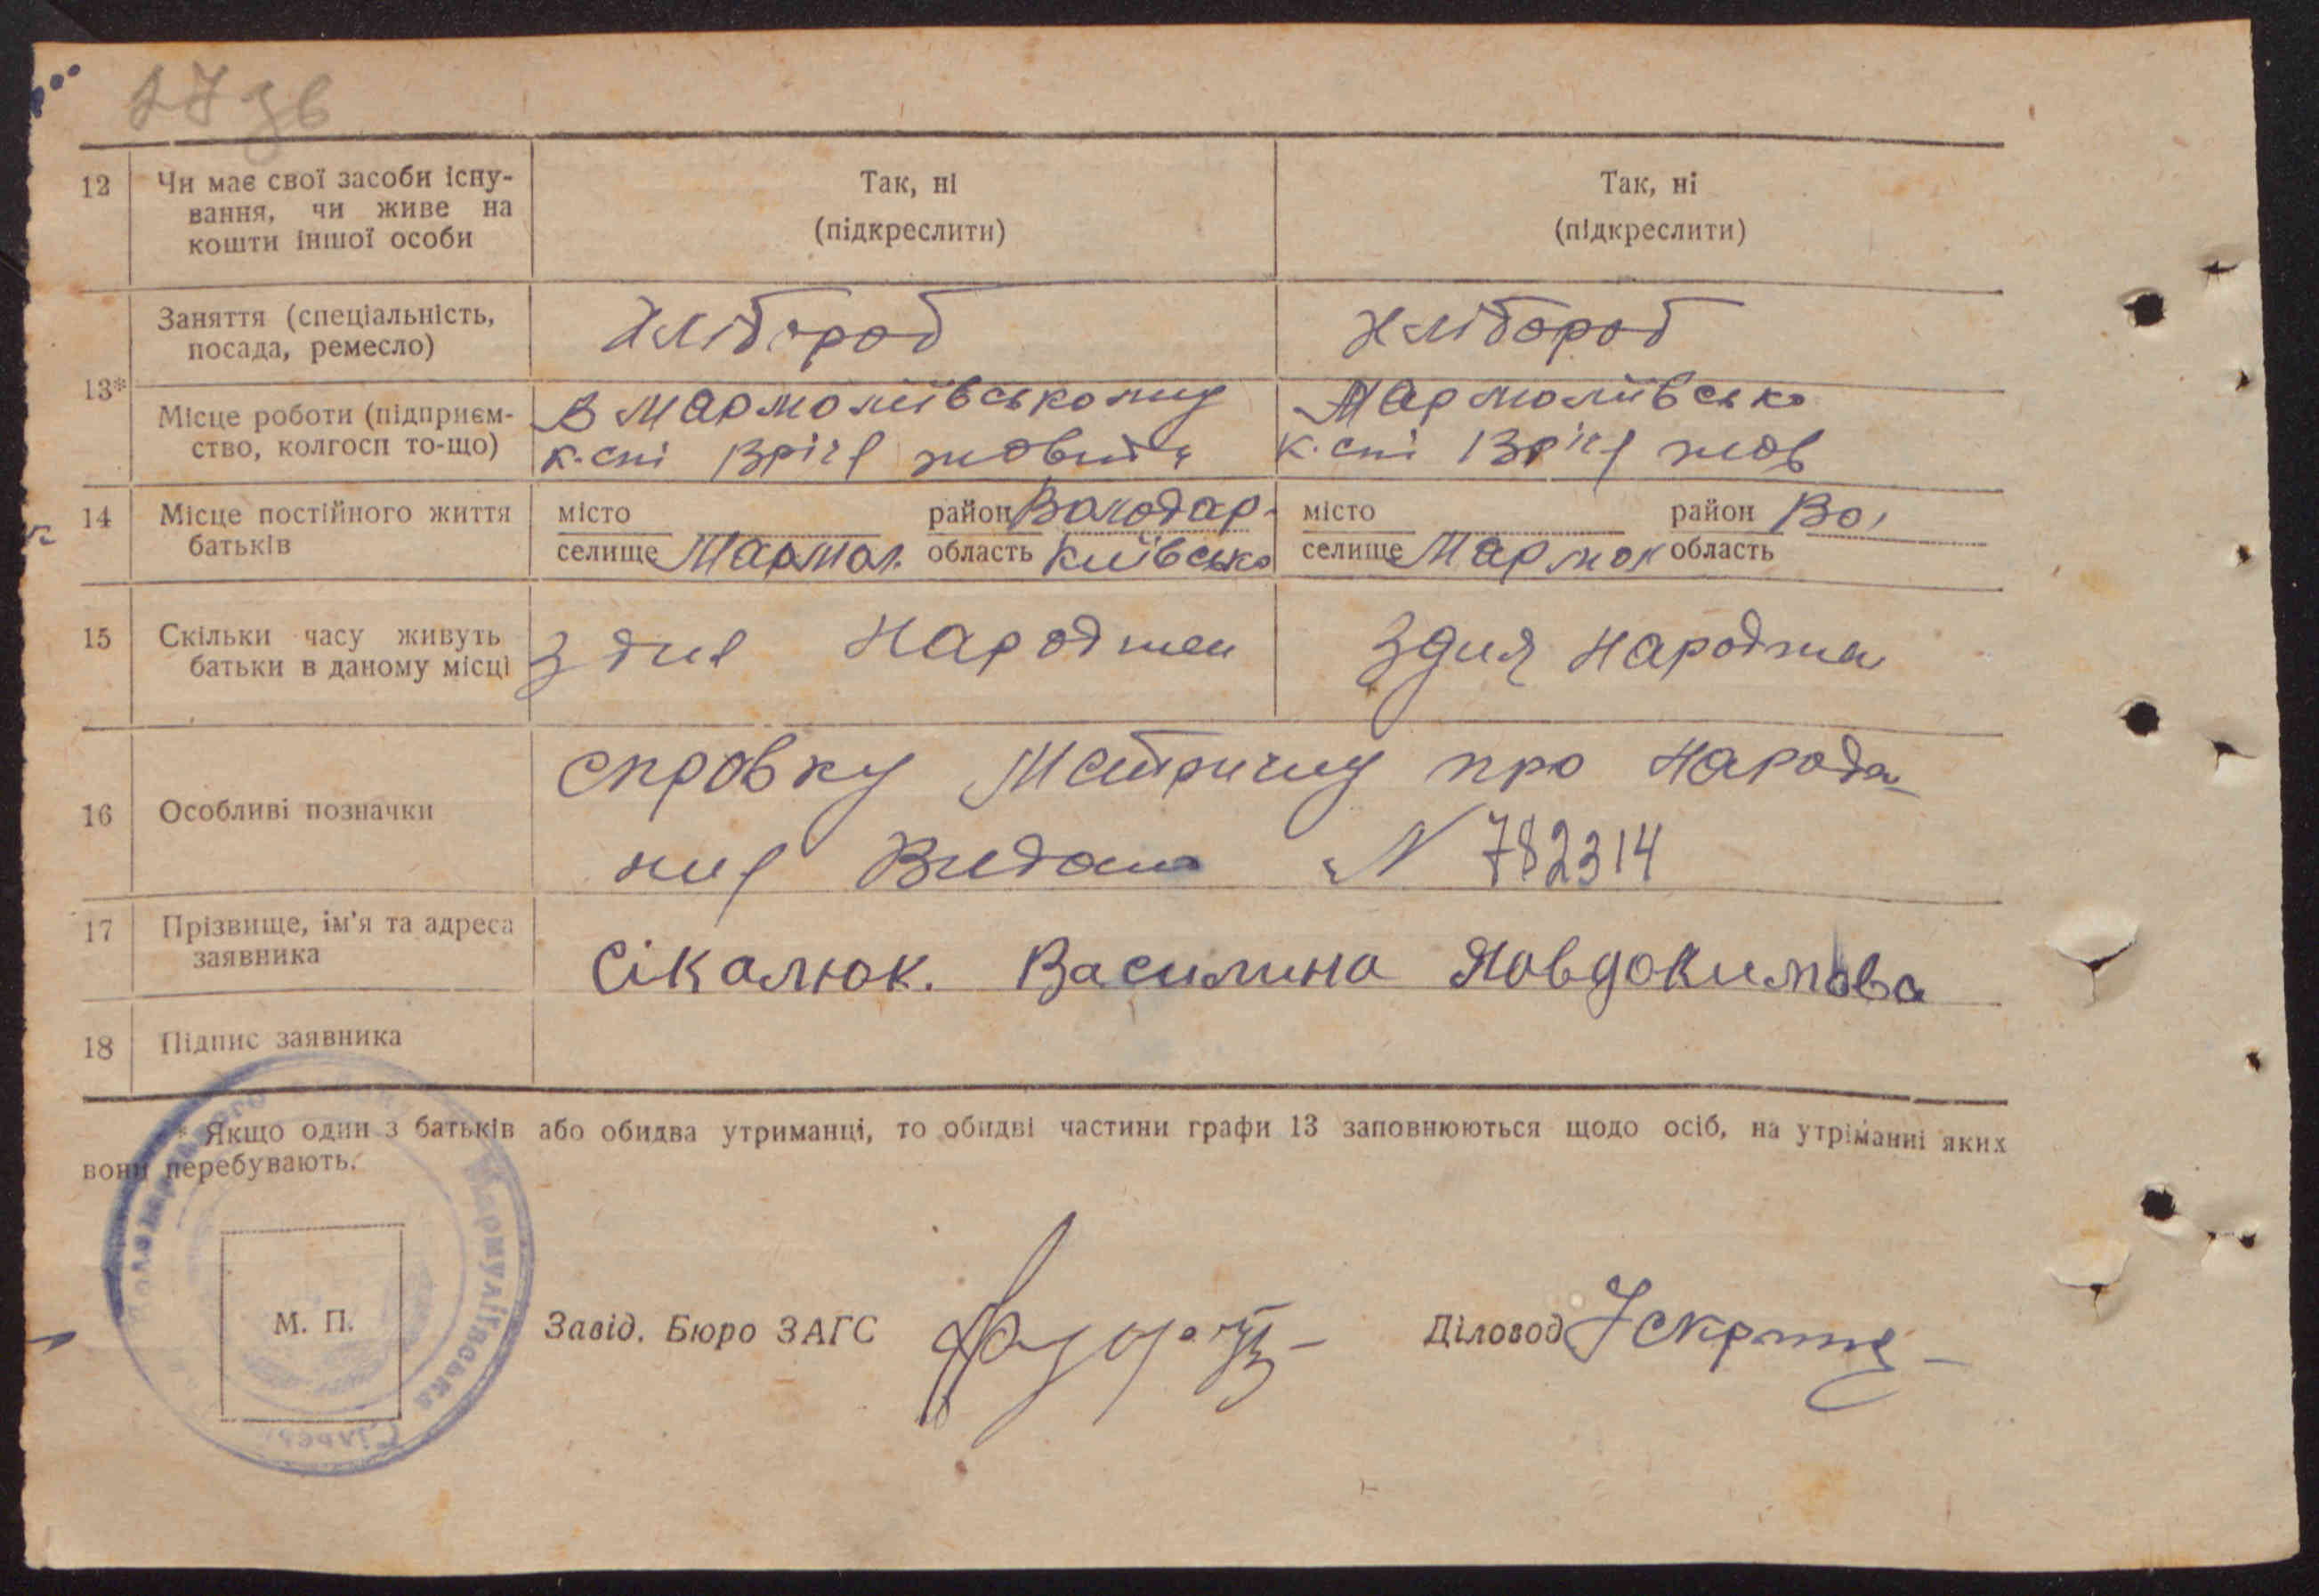 17 зв
12 Чи має свої засоби існу-
вання, чи живе на
кошти іншої особи
Так, ні
(підкреслити)
Так, ні
(підкреслити)
13*
Заняття (спеціальність,
посада, ремесло)
Хлібороб
Хлібороб
Місце роботи (підприєм-
ство, колгосп то-що)
В Мармоліївському
к-спі річя жовтня
Мармоліївсько
к.спі річя жов
14 Місце постійного життя
батьків
місто район Володар-
селище Мармол. область Київсько
місто район Во,
селище Мармол область
15 Скільки часу живуть
батьки в даному місці
З дня Народжен
З дня Народжен
16 Особливі позначки
справку Метричну про Народже
ння Видано N 782314
17 Прізвище, ім'я та адреса
заявника
Сікалюк. Василина Явдокимова
18 Підпис заявника
* Якщо один з батьків або обидва утриманці, то обидві частини графи 13 заповнюються щодо осіб, на утріманні яких
вони перебувають.
М. П.
Завід. Бюро ЗАГС
Діловод